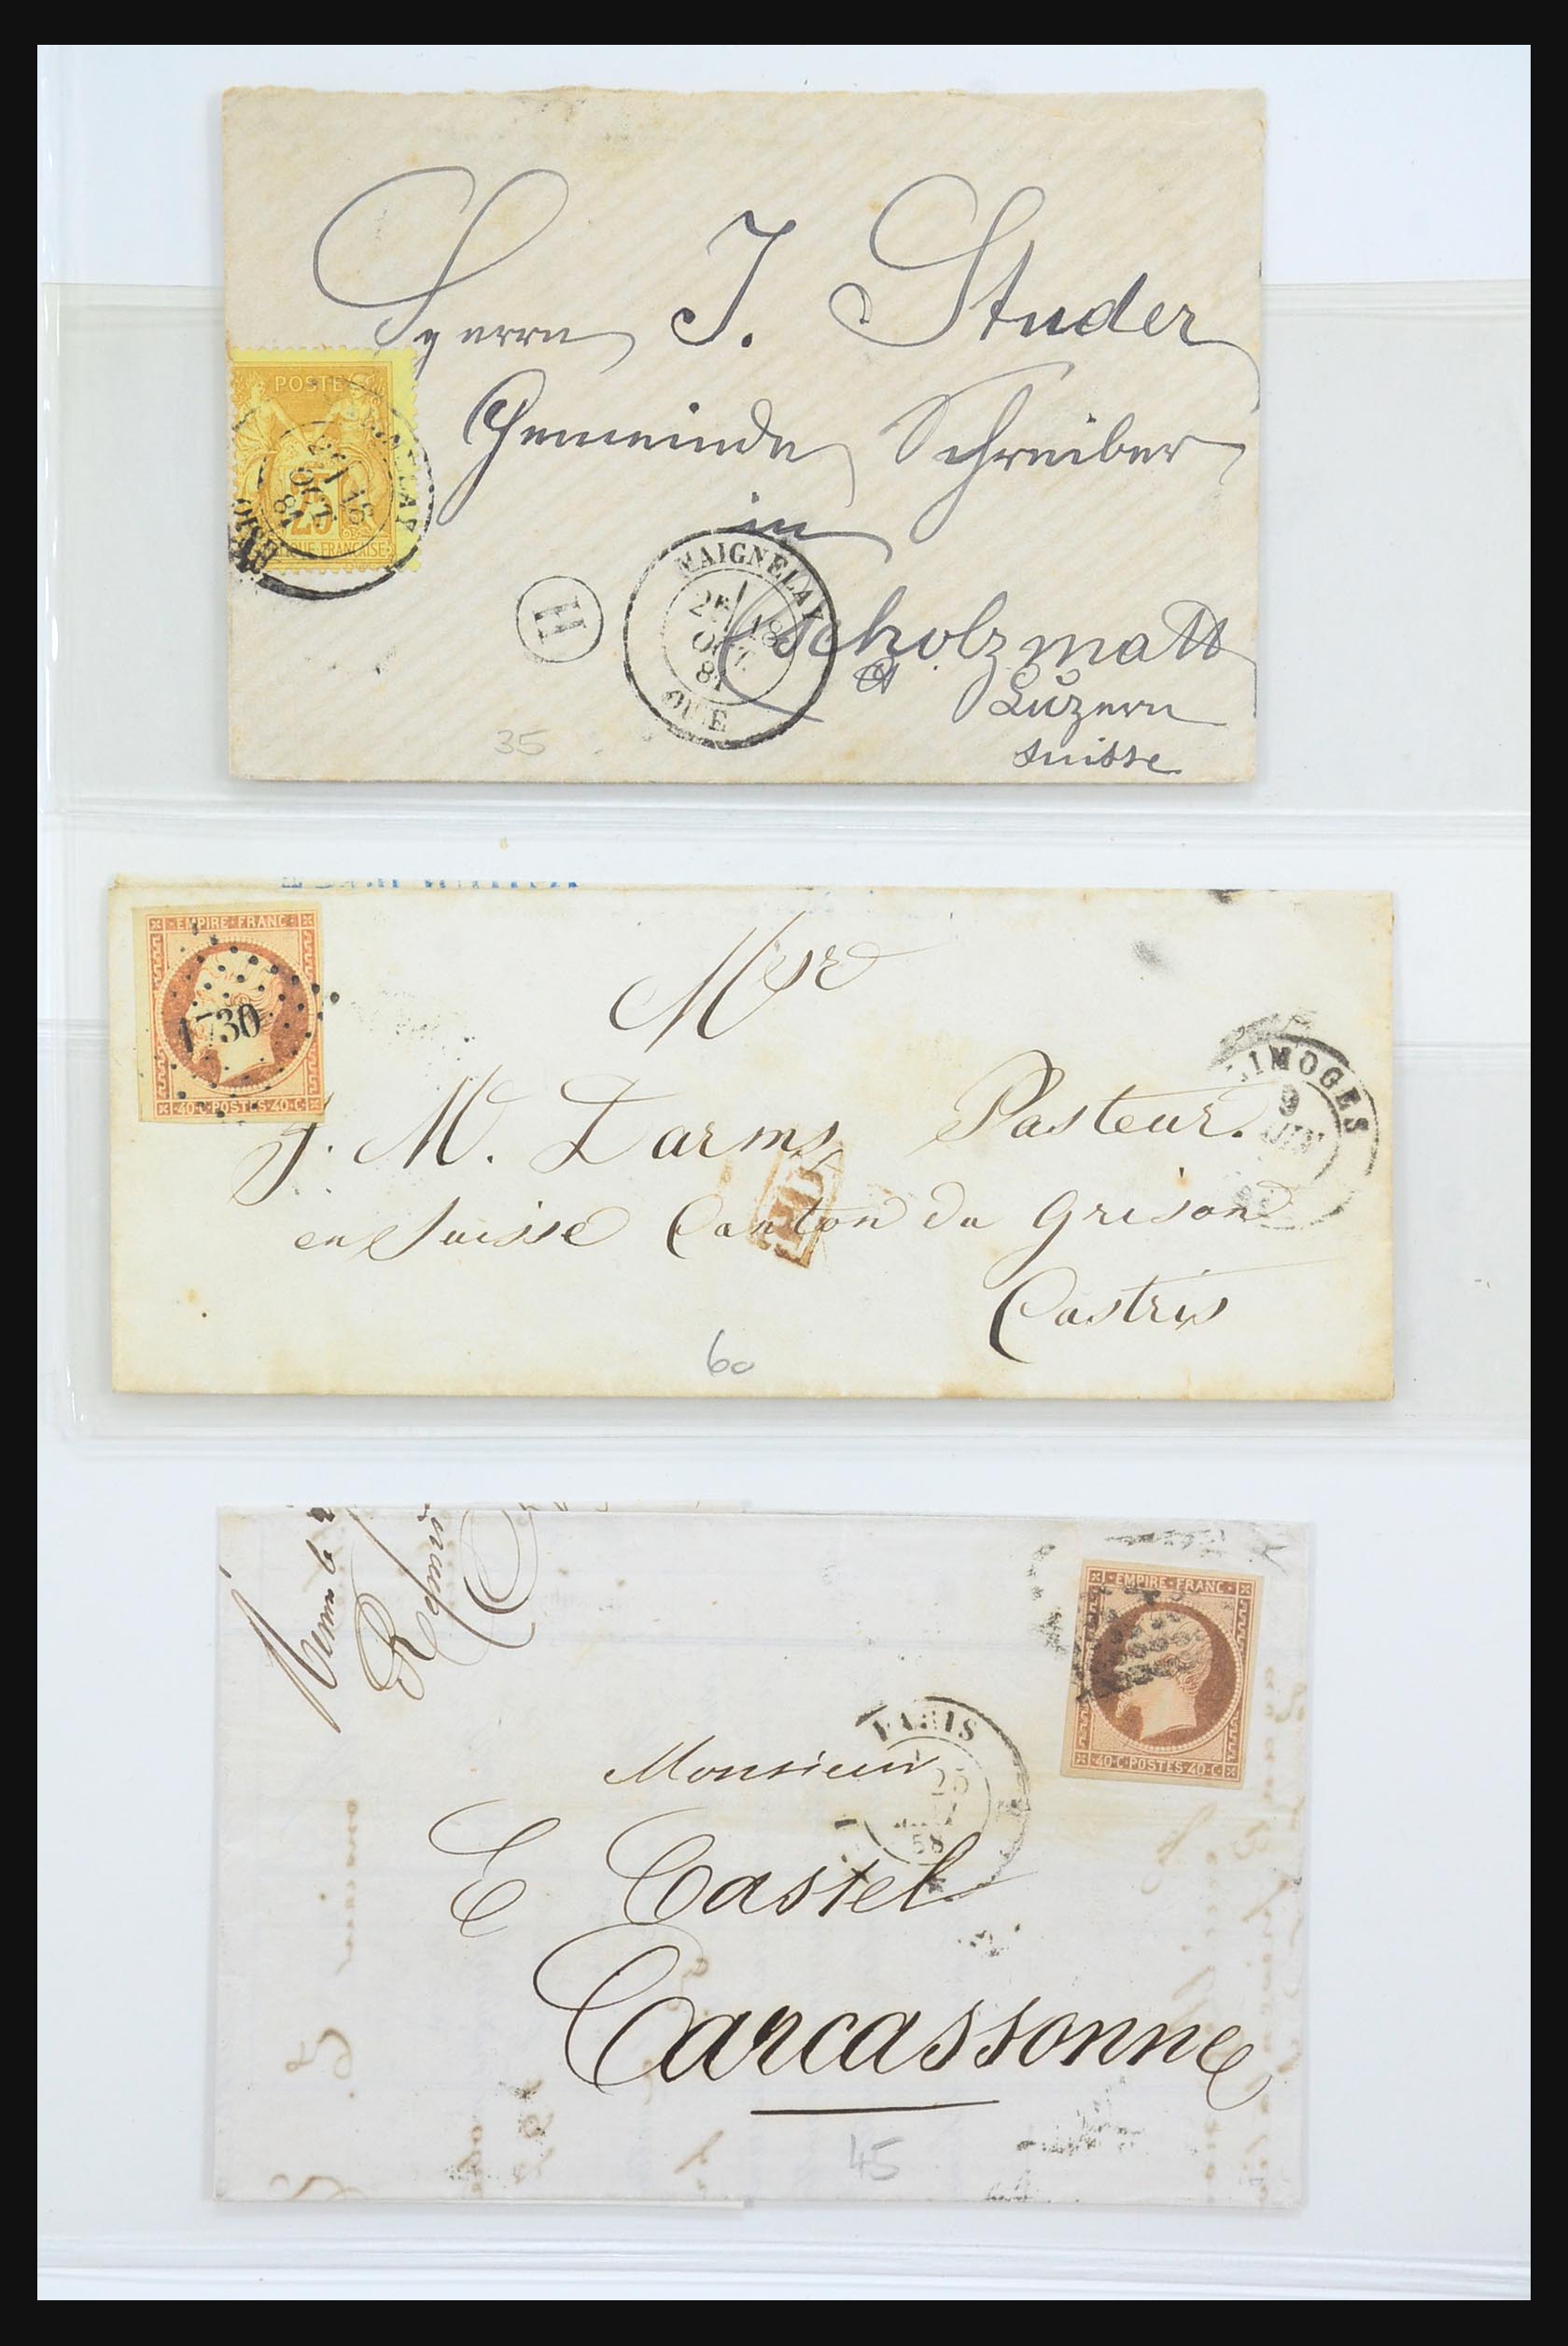 Herrn J. Studer
Gemeinde Schreiber
in
Escholzmatt
Luzern
Suisse
POSTE
25
QUE FRANÇAISE
OCT
81
MAIGNELAY
18
OCT.
81
H
35
EMPIRE·FRANC·
1730
·40·C·POSTES·40·C·
Msr
J. M. Darms Pasteur.
en Suisse Canton du Grison
Castris
LIMOGES
9
JUIN
PD
60
EMPIRE·FRANC·
·40·C·POSTES·40·C·
PARIS
25
58
Monsieur
E Castel
Carcassonne
45